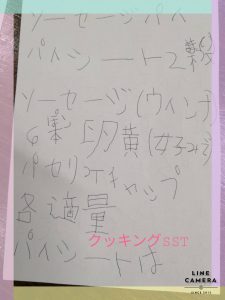 ソーセージパイ
パイシート2枚
ソーセージ(ウィンナ
6本 卵黄(
パセリ ケチャップ
各適量
クッキングSST
パイシートは
LINE
CAMERA